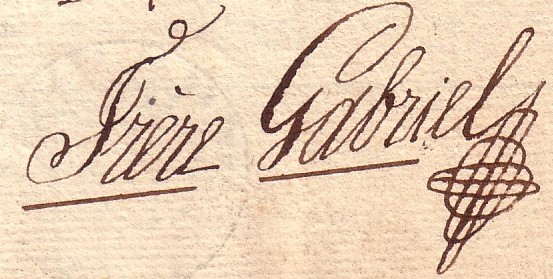 Frère Gabriel